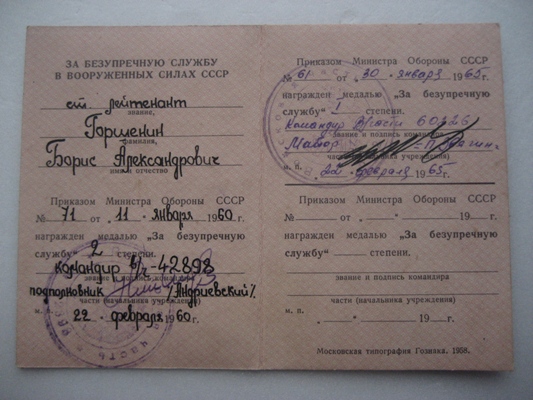 ЗА БЕЗУПРЕЧНУЮ СЛУЖБУ
В ВООРУЖЕННЫХ СИЛАХ СССР
ст. лейтенант
звание,
Горшенин
фамилия,
Борис Александрович
имя, отчество
Приказом Министра Обороны СССР
№ 71 от „11„ января 1960 г.
награжден медалью „За безупречную
службу“ 2 степени.
командир в/ч-42898
звание и подпись командира
подполковник /Андриевский/
части (начальника учреждения)
м. п. 22 февраля 1960 г.
Приказом Министра Обороны СССР
№ 61 от „30„ января 1965 г.
награжден медалью „За безупречную
службу“ I степени.
Командир В/части 60126
звание и подпись командира
Майор
части (начальника учреждения)
м. п. „22„ февраля 1965 г.
Приказом Министра Обороны СССР
№ от „ “ 19 г.
награжден медалью „За безупречную
службу“ степени.
звание и подпись командира
части (начальника учреждения)
м. п. „ “ 19 г.
Московская типография Гознака. 1958.